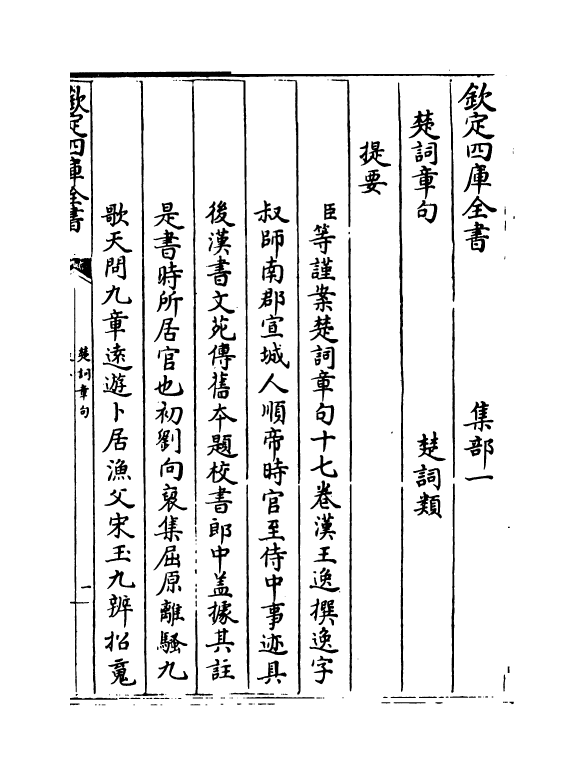 欽定四庫全書 集部一
楚詞章句 楚詞類
提要
臣等謹案楚詞章句十七卷漢王逸撰逸字
叔師南郡宣城人順帝時官至侍中事迹具
後漢書文苑傳舊本題校書郎中盖據其註
是書時所居官也初劉向裒集屈原離騷九
歌天問九章逺遊卜居漁父宋玉九辨招䰟
欽定四庫全書
楚詞章句
一